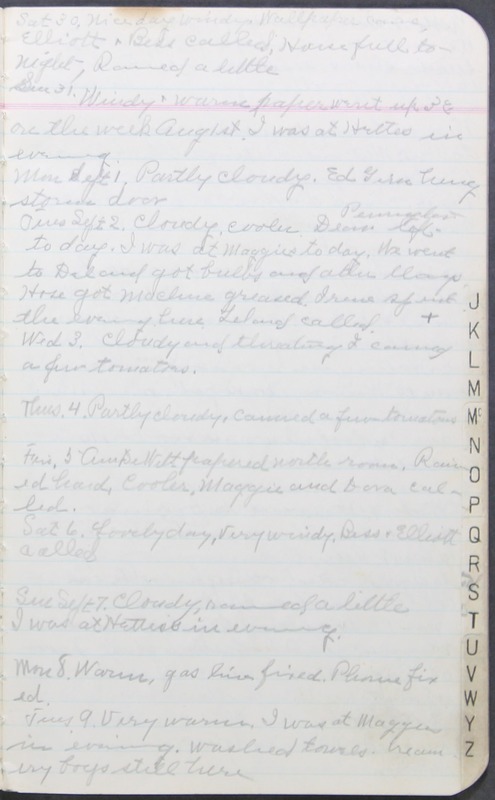 Sat 30, Nice day windy. Wallpaper came
Elliott & Bess called, House full to-
night, Rained a little
Sun 31. Windy & warm, paper went up 3¢
on the week Aug 1st. I was at Hetties in
evening.
Mon Sept 1. Partly Cloudy. Ed Green hung
storm door
Tues Sept 2. Cloudy, cooler. Dean left
to day. I was at Maggies to day. We went
to D and got bulbs and other things.
Hose got machine greased. Irene spent
the evening here. Leland called. +
Wed 3. Cloudy and threatening I canning
a few tomatoes.
Thurs. 4. Partly cloudy, canned a few tomatoes
Fri. 5 DeWitt papered north room. Rain-
ed hard, Cooler, Maggie and Dora cal-
led.
Sat 6. Lovely day, Very windy. Bess & Elliott
called
Sun Sept 7. Cloudy, rained a little
I was at Hetties in evening.
Mon 8. Warm, gas line fixed. Phone fix
ed.
Tues 9. Very warm. I was at Maggies
in evening. Washed towels. Cream
ery boys still here
J
K
L
M
Mc
N
O
P
Q
R
S
T
U
V
W
Y
Z